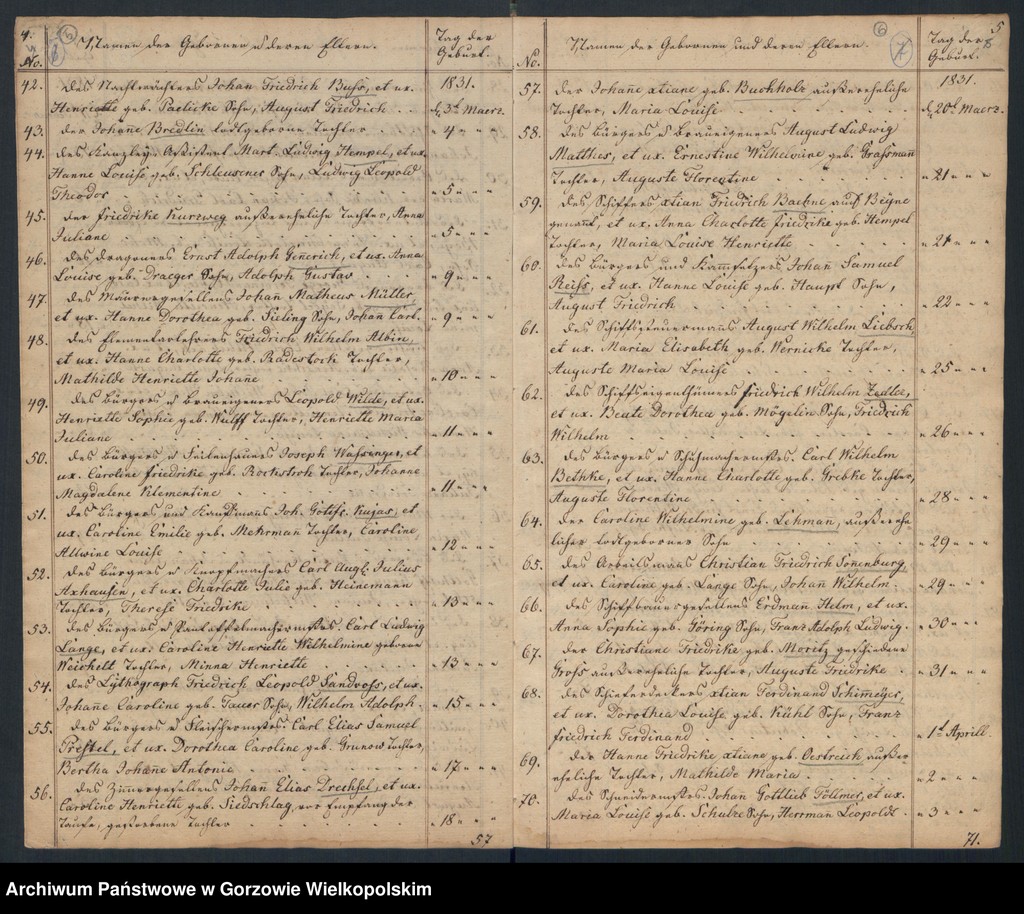 4.
No.
Namen der Gebornen u deren Eltern.
Tag der
Geburt.
42. Des Nachtwächters Johan Friedrich Buss, et ux.
Henriette geb. Paelicke Sohn, August Friedrich
1831.
d. 3t Maerz.
43. Der Johañe Bredlin todtgeborne Tochter
" 4 " "
44. Des Kanzley-Assistent Mart. Ludwig Hempel, et ux.
Hanne Louise geb. Schleusener Sohn, Ludwig Leopold
Theodor
" 5 " "
45. Der Friedrike Kurzweg außereheliche Tochter, Anna
Juliane
" 5 " "
46. Des Dragoners Ernst Adolph Generich, et ux. Anna
Louise geb. Draeger Sohn, Adolph Gustav
" 9 " "
47. Des Maurergesellens Johan Matheus Müller,
et ux. Hanne Dorothea geb. Sieling Sohn, Johan Carl.
" 9 " "
48. Des Elementarlehrers Friedrich Wilhelm Albin,
et ux. Hanne Charlotte geb. Radestock Tochter,
Mathilde Henriette Johañe
" 10 " "
49. Des Bürgers u Braueigeners Leopold Wilde, et ux.
Henriette Sophie geb. Wulff Tochter, Henriette Maria
Juliane
" 11 " "
50. Des Bürgers u Feilenhauers Joseph Wassinger, et
ux. Caroline Friedrike geb. Rockstroh Tochter, Johanne
Magdalene Klementine
" 11 " "
51. Des Bürgers und Kaufmanns Joh. Gotfr. Kujas, et
ux. Caroline Emilie geb. Mehrman Tochter, Caroline
Allwine Louise
" 12 " "
52. Des Bürgers u Knopfmachers Carl Augt. Julius
Axhausen, et ux. Charlotte Julie geb. Heinemann
Tochter, Therese Friedrike
" 13 " "
53. Des Bürgers u Pantoffelmachermstrs. Carl Ludwig
Lange, et ux. Caroline Henriette Wilhelmine geborne
Weichelt Tochter, Minna Henriette
" 13 " "
54. Des Lythograph Friedrich Leopold Sandvoss, et ux.
Johañe Caroline geb. Tauer Sohn, Wilhelm Adolph.
" 15 " "
55. Des Bürgers u Fleischermstrs. Carl Elias Samuel
Prestel, et ux. Dorothea Caroline geb. Grunow Tochter,
Bertha Johañe Antonie
" 17 " "
56. Des Zimergesellens Johan Elias Drechsel, et ux.
Caroline Henriette geb. Siedschlag, vor Empfang der
Taufe, gestorbene Tochter
" 18 " "
57
5
No.
Namen der Gebornen und deren Eltern.
Tag der
Geburt.
57. Der Johane xtiane geb. Buchholz außereheliche
Tochter, Maria Louise
1831.
d. 20t Maerz.
58. Des Bürgers u Braueigeners August Ludwig
Matthes, et ux. Ernestine Wilhelmine geb. Grassmañ
Tochter, Auguste Florentine
" 21 " "
59. Des Schiffers xtian Friedrich Baehne auch Beigne
genannt, et ux. Anna Charlotte Friedrike geb. Hempel
Tochter, Maria Louise Henriette
" 21 " "
60. Des Bürgers und Kammsetzers Johañ Samuel
Reiss, et ux. Hanne Louise geb. Haupt Sohn,
August Friedrich
" 22 " "
61. Des Schiffssteuermanns August Wilhelm Liebsch,
et ux. Maria Elisabeth geb. Wernicke Tochter,
Auguste Maria Louise
" 25 " "
62. Des Schiffseigenthümers Friedrich Wilhelm Zedler,
et ux. Beate Dorothea geb. Mögelin Sohn, Friedrich
Wilhelm
" 26 " "
63. Des Bürgers u Schuhmachermstrs. Carl Wilhelm
Bethke, et ux. Hanne Charlotte geb. Grebke Tochter,
Auguste Florentine
" 28 " "
64. Der Caroline Wilhelmine geb. Lehman, außerehe
licher todtgeborner Sohn
" 29 " "
65. Des Arbeitsmans Christian Friedrich Sonenburg,
et ux. Caroline geb. Lange Sohn, Johan Wilhelm
" 29 " "
66. Des Schiffbauergesellens Erdman Helm, et ux.
Anna Sophie geb. Göring Sohn, Franz Adolph Ludwig.
" 30 " "
67. Der Christiane Friedrike geb. Moritz geschiedene
Gross außereheliche Tochter, Auguste Friedrike
" 31 " "
68. Des Schieferdeckers xtian Ferdinand Schimeyer,
et ux. Dorothea Louise geb. Kühl Sohn, Franz
Friedrich Ferdinand
" 1t Aprill.
69. Der Hanne Friedrike xtiane geb. Oestreich außer
eheliche Tochter, Mathilde Maria
" 2 " "
70. Des Schneidermstrs. Johan Gottlieb Tollmer, et ux.
Maria Louise geb. Schulze Sohn, Herrman Leopold
" 3 " "
71.
Archiwum Państwowe w Gorzowie Wielkopolskim